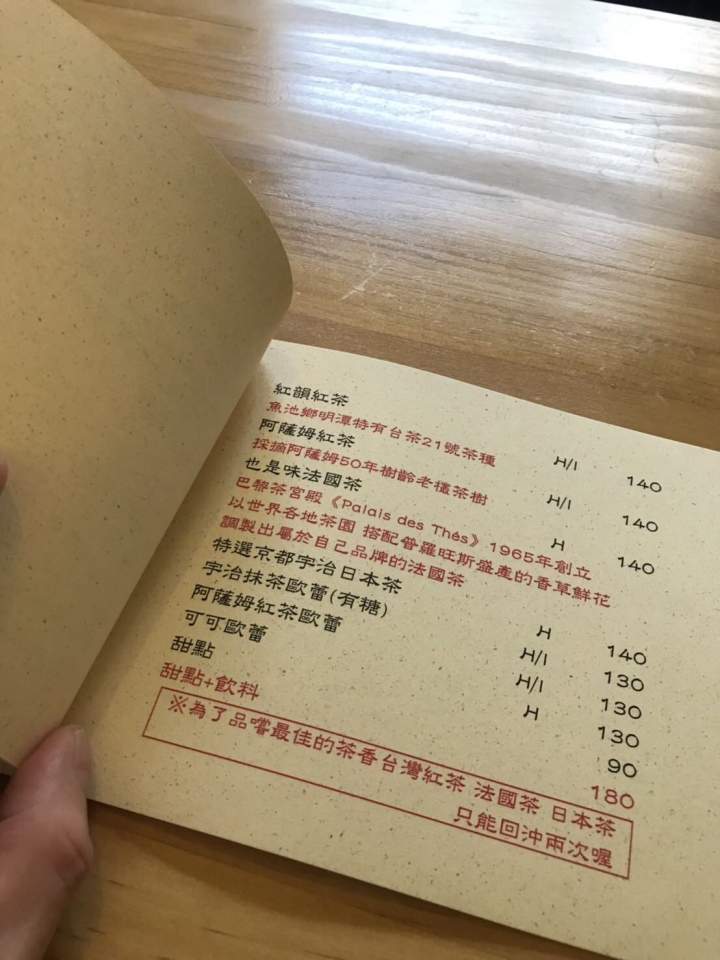 紅韻紅茶 H/I 140
魚池鄉明潭特有台茶21號茶種
阿薩姆紅茶 H/I 140
採摘阿薩姆50年樹齡老欉茶樹
也是味法國茶 H 140
巴黎茶宮殿《Palais des Thés》1965年創立
以世界各地茶園 搭配普羅旺斯盛產的香草鮮花
調製出屬於自己品牌的法國茶
特選京都宇治日本茶 H 140
宇治抹茶歐蕾(有糖) H/I 130
阿薩姆紅茶歐蕾 H/I 130
可可歐蕾 H 130
甜點 90
甜點+飲料 180
※為了品嚐最佳的茶香台灣紅茶 法國茶 日本茶
只能回沖兩次喔